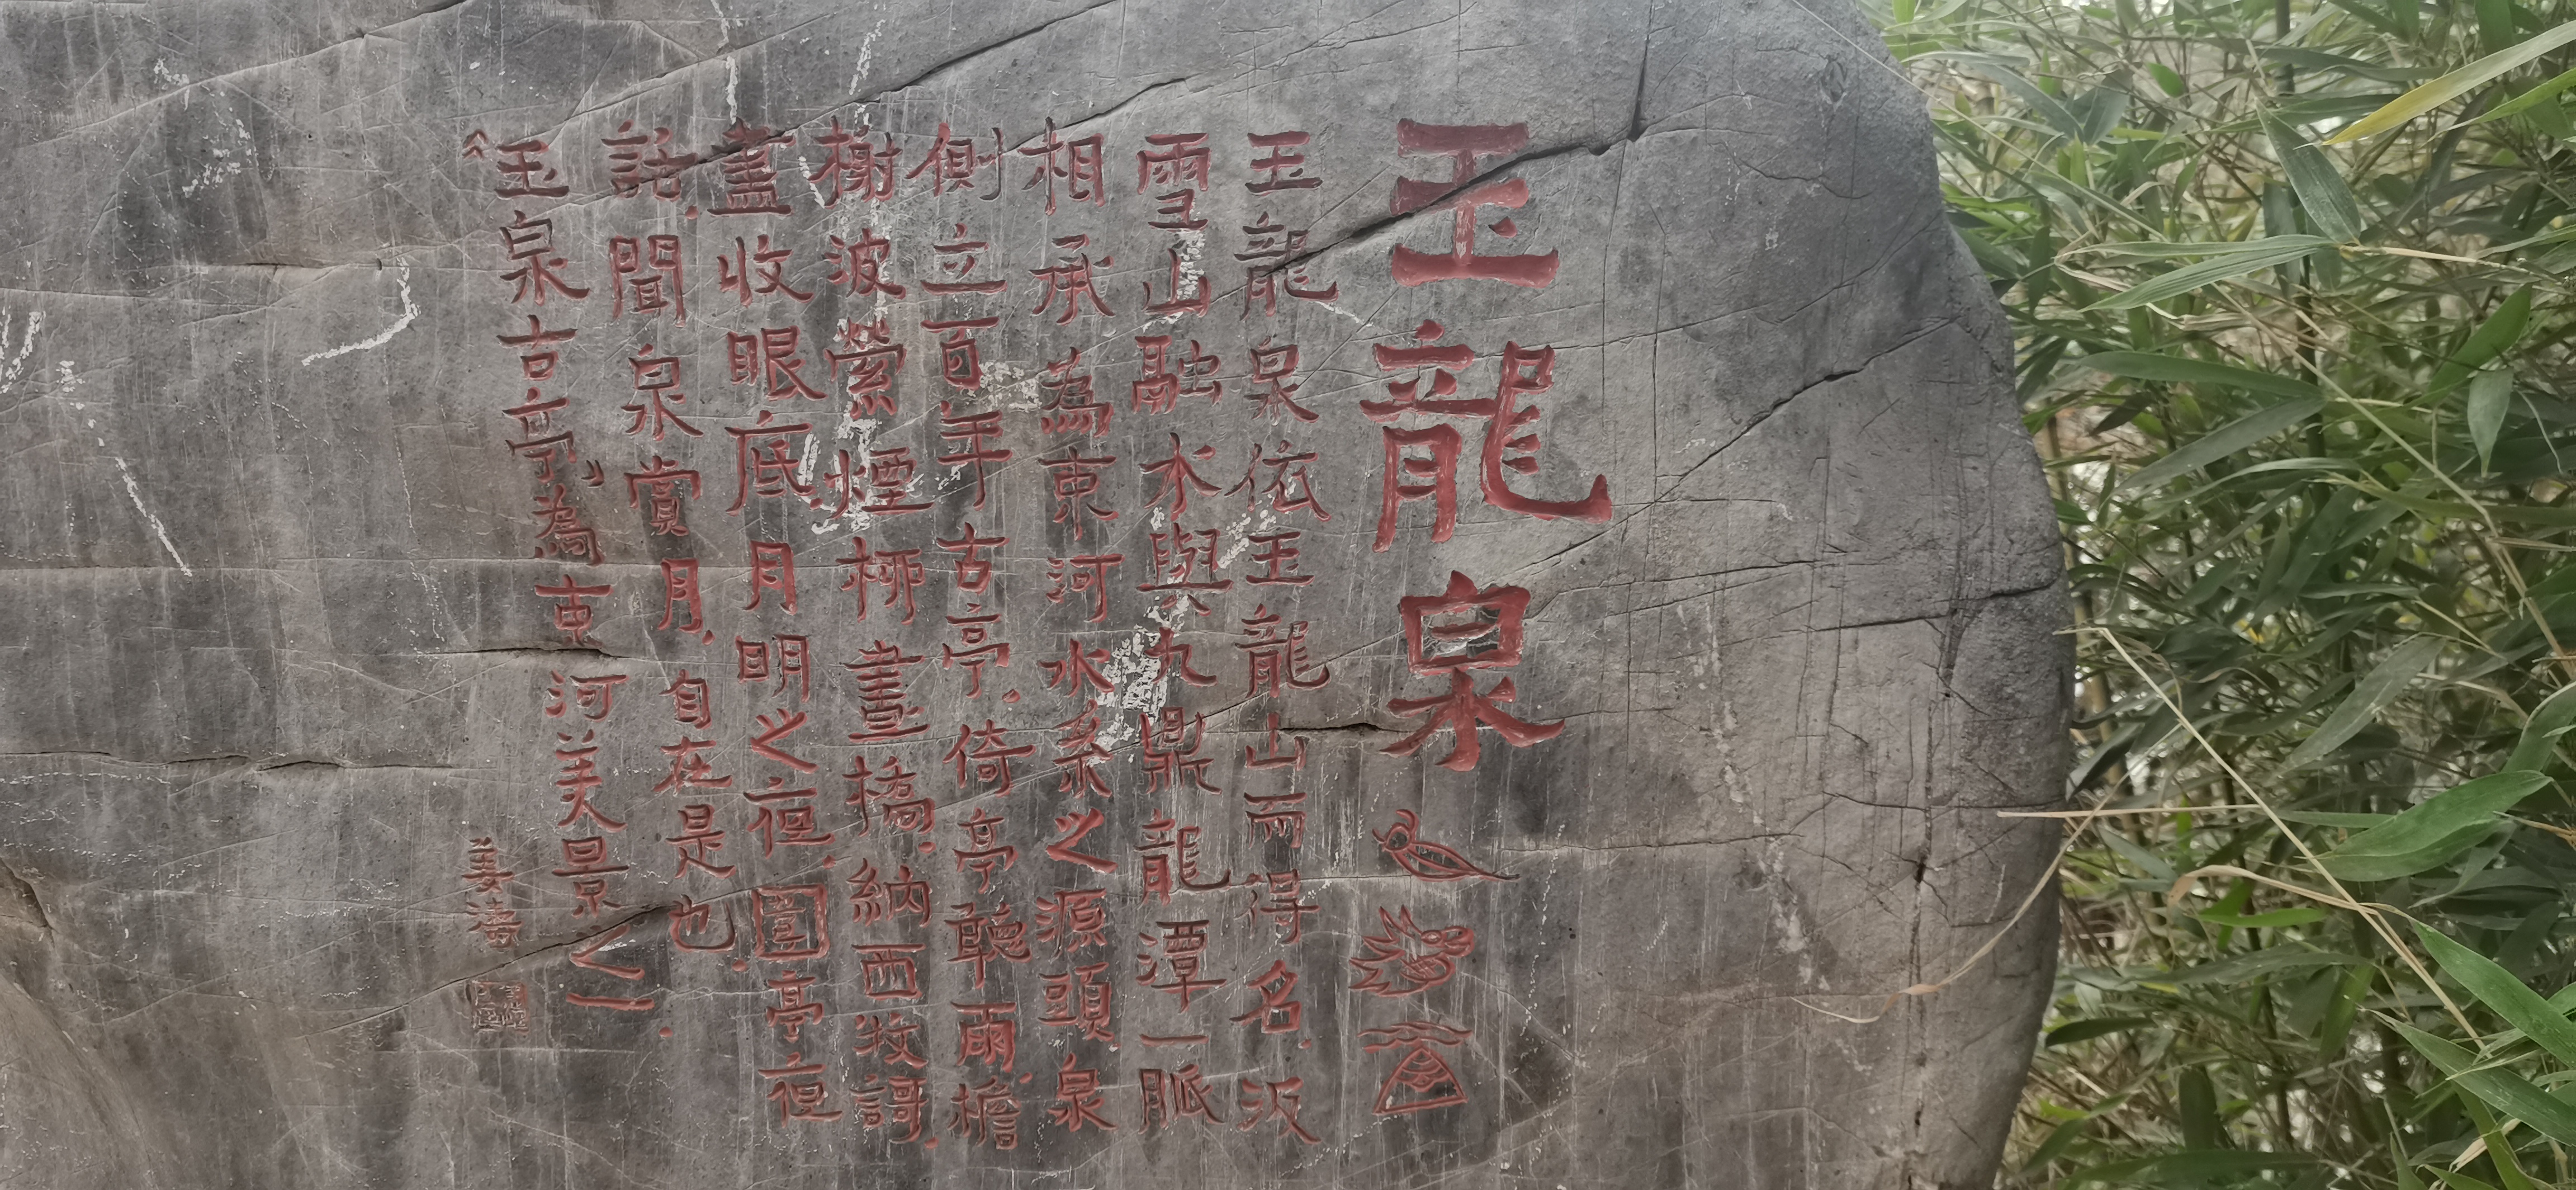 玉龍泉
玉龍泉依玉龍山而得名.汲
雪山融水與九鼎龍潭一脈
相承為束河水系之源頭泉
側立百年古亭.倚亭聽雨.檐
榭波縈.煙柳畫橋.納西牧謌.
盡收眼底.月明之夜.圍亭夜
話.聞泉賞月.自在是也.
“玉泉古亭”為束河美景之一.
姜濤